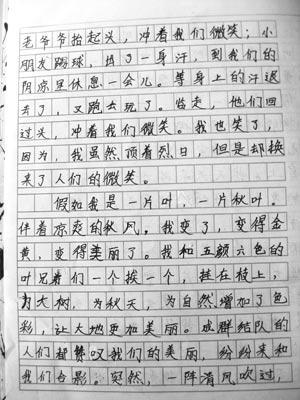 老爷爷抬起头，冲着我们微笑；小
朋友踢球，热了一身汗，到我们的
阴凉里休息一会儿。等身上的汗退
去了，又跑去玩了。临走，他们回
过头，冲着我们微笑。我也笑了，
因为，我虽然顶着烈日，但是却换
来了人们的微笑。
假如我是一片叶，一片秋叶。
伴着凉爽的秋风。我变了，变得金
黄，变得美丽了。我和五颜六色的
叶兄弟们一个挨一个，挂在枝上，
为大树，为秋天，为自然增加了色
彩，让大地更加美丽。成群结队的
人们都赞叹我们的美丽，纷纷来和
我们合影。突然，一阵清风吹过，